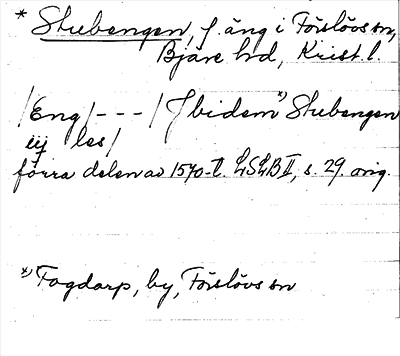 * Stubengen, f. äng i Förslövs sn,
Bjäre hd, Krist. l.
/Eng/ - - - / Jbidem *) Stubengen
iij les/
förra delen av 1570-t. LSLB II, s. 29. orig.
*) Fogdarp, by, Förslövs sn